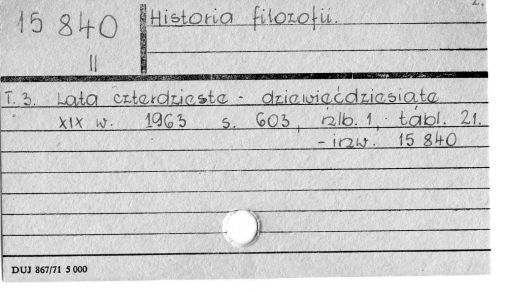 2.
15 840
II
Historia filozofii.
T. 3. Lata czterdzieste - dziewięćdziesiąte
XIX w. 1963 s. 603, nlb. 1, tabl. 21.
- inw. 15 840
DUJ 867/71 5 000